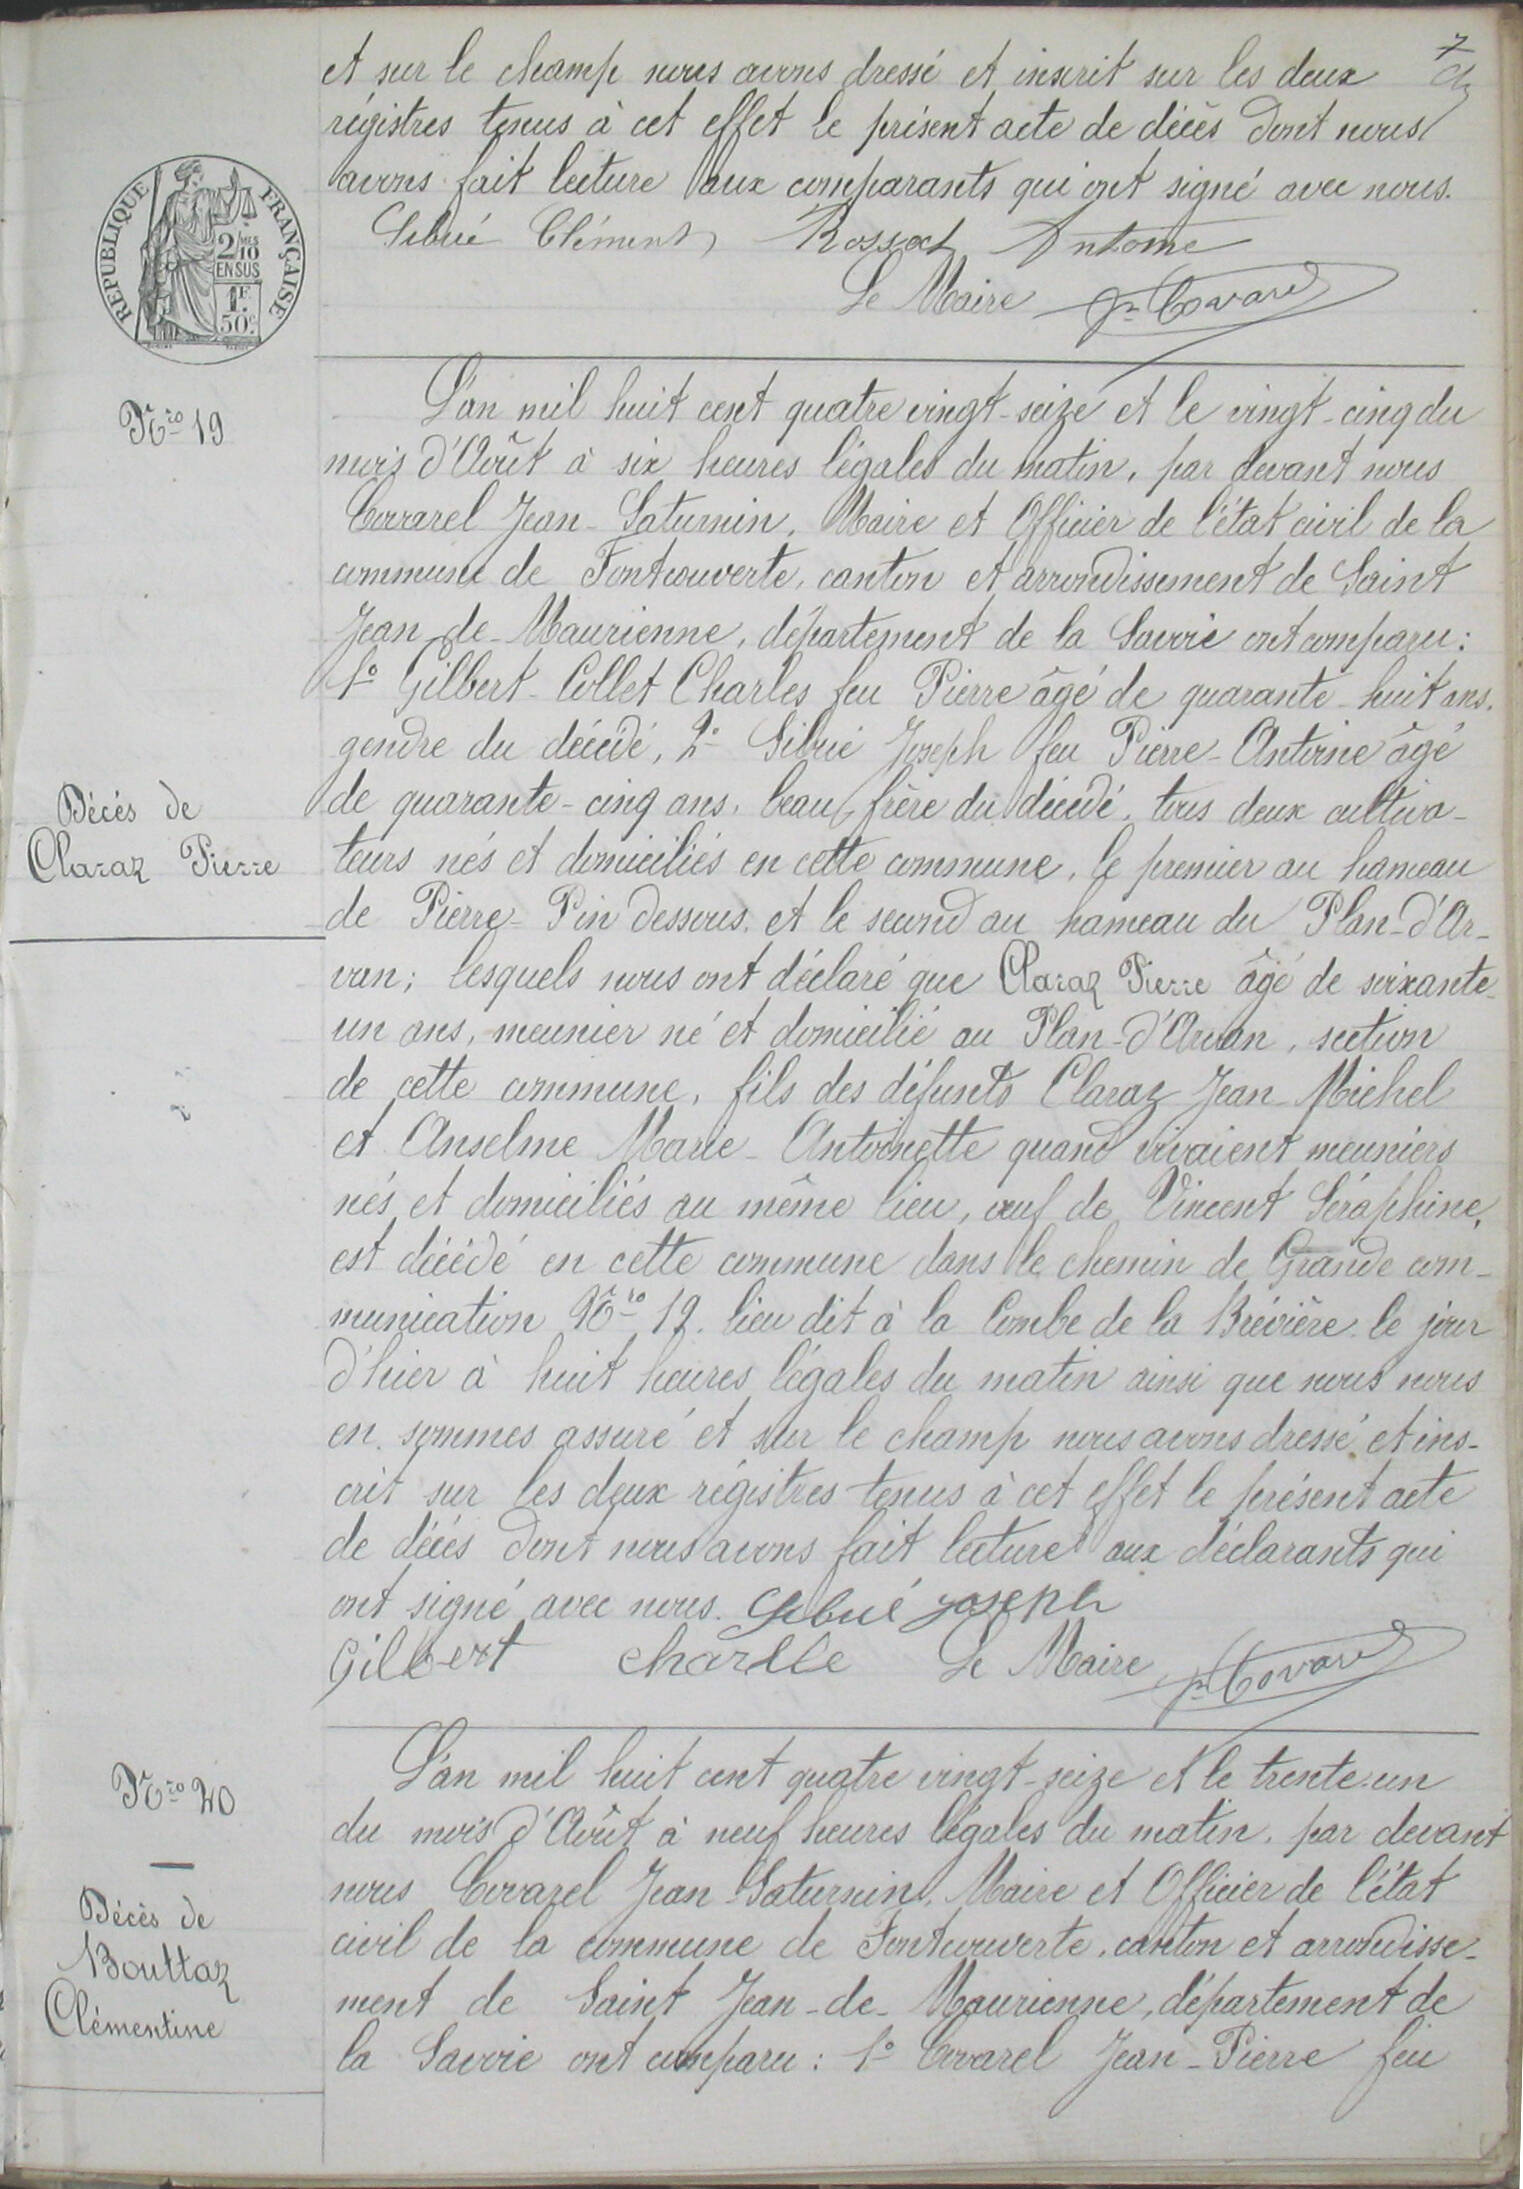 7
et sur le champ nous avons dressé et inscrit sur les deux
régistres tenus à cet effet le présent acte de décès dont nous
avons fait lecture aux comparants qui ont signé avec nous.
Sibué Clément Rossat Antome
Le Maire Covarel
RÉPUBLIQUE FRANÇAISE
2/10 MES
EN SUS
1F
50c
Nro 19
Décés de
Claraz Pierre
L'an mil huit cent quatre vingt-seize et le vingt-cinq du
mois d'Août à six heures légales du matin, par devant nous
Covarel Jean-Saturnin, Maire et Officier de l'état civil de la
commune de Fontcouverte, canton et arrondissement de Saint
Jean-de-Maurienne, département de la Savoie ont comparu:
1° Gilbert-Collet Charles feu Pierre âgé de quarante-huit ans,
gendre du décédé, 2° Sibué Joseph feu Pierre-Antoine âgé
de quarante-cinq ans, beau frère du décédé, tous deux cultiva-
teurs nés et domiciliés en cette commune, le premier au hameau
de Pierre-Pin dessous, et le second au hameau du Plan-d'Ar-
van; lesquels nous ont déclaré que Claraz Pierre âgé de soixante-
un ans, meunier né et domicilié au Plan-d'Arvan, section
de cette commune, fils des défunts Claraz Jean-Michel
et Anselme Marie-Antoinette quand vivaient meuniers
nés et domiciliés au même lieu, veuf de Vincent Séraphine,
est décédé en cette commune dans le chemin de Grande com-
munication Nro 12, lieu dit à la Combe de la Brévière le jour
d'hier à huit heures légales du matin ainsi que nous nous
en sommes assuré et sur le champ nous avons dressé et ins-
crit sur les deux régistres tenus à cet effet le présent acte
de décés dont nous avons fait lecture aux déclarants qui
ont signé avec nous. Sibué joseph
Gilbert Charlle Le Maire Covarel
Nro 20
Décès de
Bouttaz
Clémentine
L'an mil huit cent quatre vingt-seize et le trente-un
du mois d'Août à neuf heures légales du matin, par devant
nous Covarel Jean-Saturnin, Maire et Officier de l'état
civil de la commune de Fontcouverte, canton et arrondisse-
ment de Saint Jean-de-Maurienne, département de
la Savoie ont comparu: 1° Covarel Jean-Pierre feu